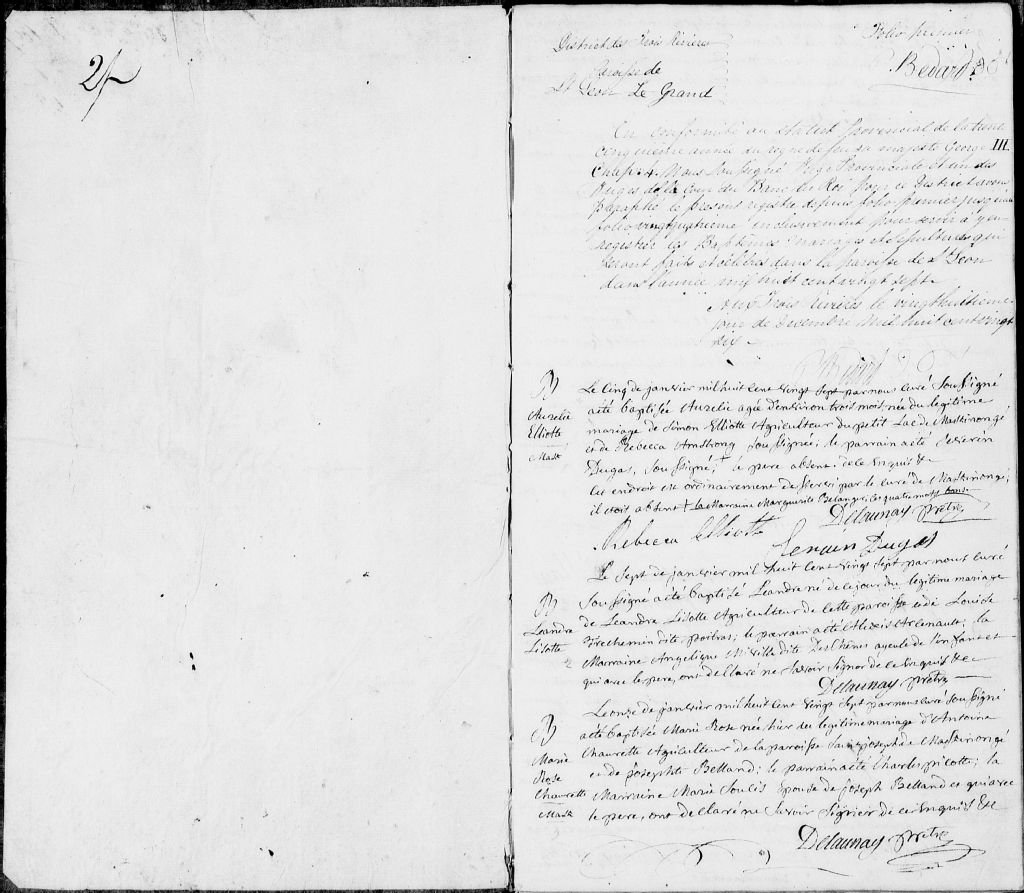 2/-
Folio premier
Bedard
District des Trois Rivieres
Paroisse de
St Leon Le Grand
En conformité au Statut Provincial de la trente
cinquieme année du regne de feu sa majesté George III.
Chap: 4. Nous Soussigné Juge Provincial et un des
Juges de la Cour du Banc du Roi pour ce District avons
paraphé ce present registre depuis folio premier jusqu'au
folio vingtquatrieme inclusivement pour servir à y en
registrer les Baptêmes mariages et sepultures qui
seront faits et célébrés dans la paroisse de St Léon
dans l'année mil huit cent vingt sept.
Aux Trois Rivières le vingthuitieme
jour de Decembre Mil huit cent vingt
six -
B
Aurelie
Elliotte
Mask
Le Cinq de janvier mil huit Cent vingt Sept par nous Curé Soussigné
a été baptisée Aurelie agée d'environ trois mois, née du legitime
mariage de Simon Elliotte Agriculteur du petit Lac de Maskinongé
et de Rebecca Armstrong Soussignée; le parrain a été Severin
Dugas, Soussigné; + le pere absent. de ce Enquis &c
Cet endroit est ordinairement desservi par le curé de Maskinongé;
il etoit absent + la Marraine Marguerite Belanger, Ces quatre mots bons
Delaunay prêtre
Rebecca Elliott
Serain Dugas
B
Leandre
Lisotte
2
Le Sept de janvier mil huit Cent vingt Sept par nous Curé
Soussigné a été baptisé Leandre né de ce jour du legitime mariage
de Leandre Lisotte Agriculteur de cette paroisse et de Louise
Frechemin dite poitras; le parrain a été Alexis Arsenault; la
Marraine Angelique Miville dite DesChênes ayeule de l'enfant et
qui avec le pere, ont declaré ne Savoir Signer de ce Enquis &c
Delaunay prêtre
B
Marie
Rose
Chaurette
Mask
Le onze de janvier mil huit Cent vingt Sept par nous curé Soussigné
a été baptisée Marie Rose née hier du legitime mariage d'Antoine
Chaurette Agriculteur de la paroisse Saint joseph de Maskinongé
et de josephte Bettand; le parrain a été Charles pilotte; la
Marraine Marie Soulis Epouse de joseph Bettand et qui avec
le pere, ont declaré ne Savoir Signer de ce Enquis &c
Delaunay prêtre